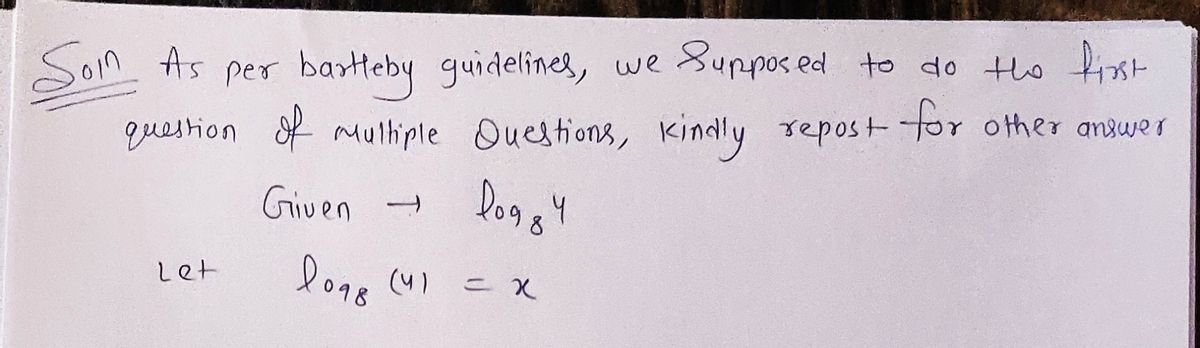 Soln As per bartleby guidelines, we Supposed to do the first
question of Multiple Questions, kindly repost for other answer
Given → log₈4
Let log₈ (4) = x